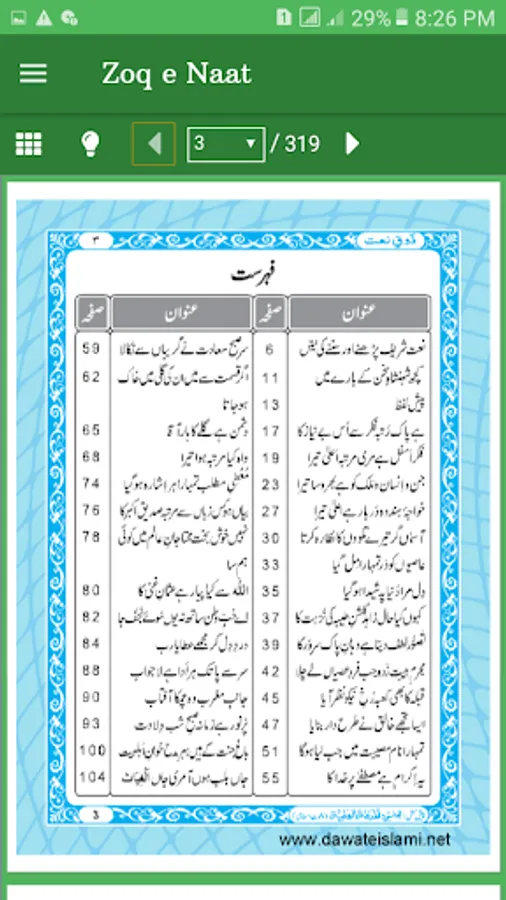 29% 8:26 PM
Zoq e Naat
3 / 319
ذوقِ نعت ۳
فہرست
عنوان صفحہ عنوان صفحہ
نعت شریف پڑھنے اور سننے کی نیتیں 6 سرِ صبح سعادت نے گریباں سے نکالا 59
کچھ شہنشاہِ سخن کے بارے میں 11 اگر قسمت سے میں ان کی گلی میں خاک 62
پیش لفظ 13 ہو جاتا
ہے پاک رُتبہ فکر سے اُس بے نیاز کا 17 دشمن ہے گلے کا ہار آقا 65
فکر اسفل ہے مری مرتبہ اعلیٰ تیرا 19 واہ کیا مرتبہ ہوا تیرا 68
جن و انسان و ملک کو ہے بھروسا تیرا 23 مُعْطِیِ مطلب تمہارا ہر اِشارہ ہو گیا 74
خواجۂ ہند وہ دربار ہے اعلیٰ تیرا 27 بیاں ہو کس زباں سے مرتبہ صدیق اکبر کا 76
آسماں گر تیرے تلووں کا نظارہ کرتا 30 نہیں خوش بخت محتاجانِ عالم میں کوئی 78
عاصیوں کو دَر تمہارا مل گیا 33 ہم سا
دِل مرا دُنیا پہ شیدا ہو گیا 35 اللہ سے کیا پیار ہے عثمان غنی کا 80
کہوں کیا حال زاہد گلشنِ طیبہ کی نُزہت کا 37 اے حُبِّ وطن ساتھ نہ یوں سوئے نجف جا 82
تصورِ لطف دیتا ہے دہانِ پاک سرور کا 39 دردِ دِل کر مجھے عطا یا رب 84
مجرمِ ہیبت زدہ جب فردِ عصیاں لے چلا 42 سر سے پا تک ہر اَدا ہے لاجواب 88
قبلہ کا بھی کعبہ رُخِ نیکو نظر آیا 45 جانبِ مغرب وہ چمکا آفتاب 90
ایسا تجھے خالق نے طرح دار بنایا 47 پُرنور ہے زمانہ صبح شبِ وِلادت 93
تمہارا نام مصیبت میں جب لیا ہو گا 51 باغِ جنت کے ہیں بہرِ مدح خوانِ اہلبیت 100
یہ اِکرام ہے مصطفےٰ پر خدا کا 55 جاں بلب ہوں آ مری جاں اَلْغِیَاث 104
3
www.dawateislami.net